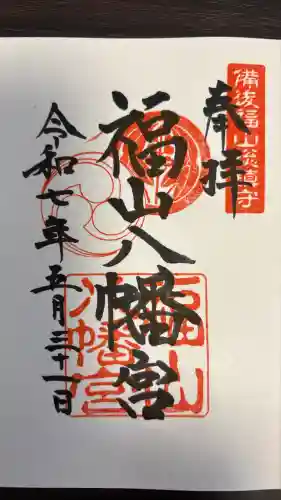 備後福山総鎮守
奉拝
福山八幡宮
福山八幡宮
令和七年五月三十一日